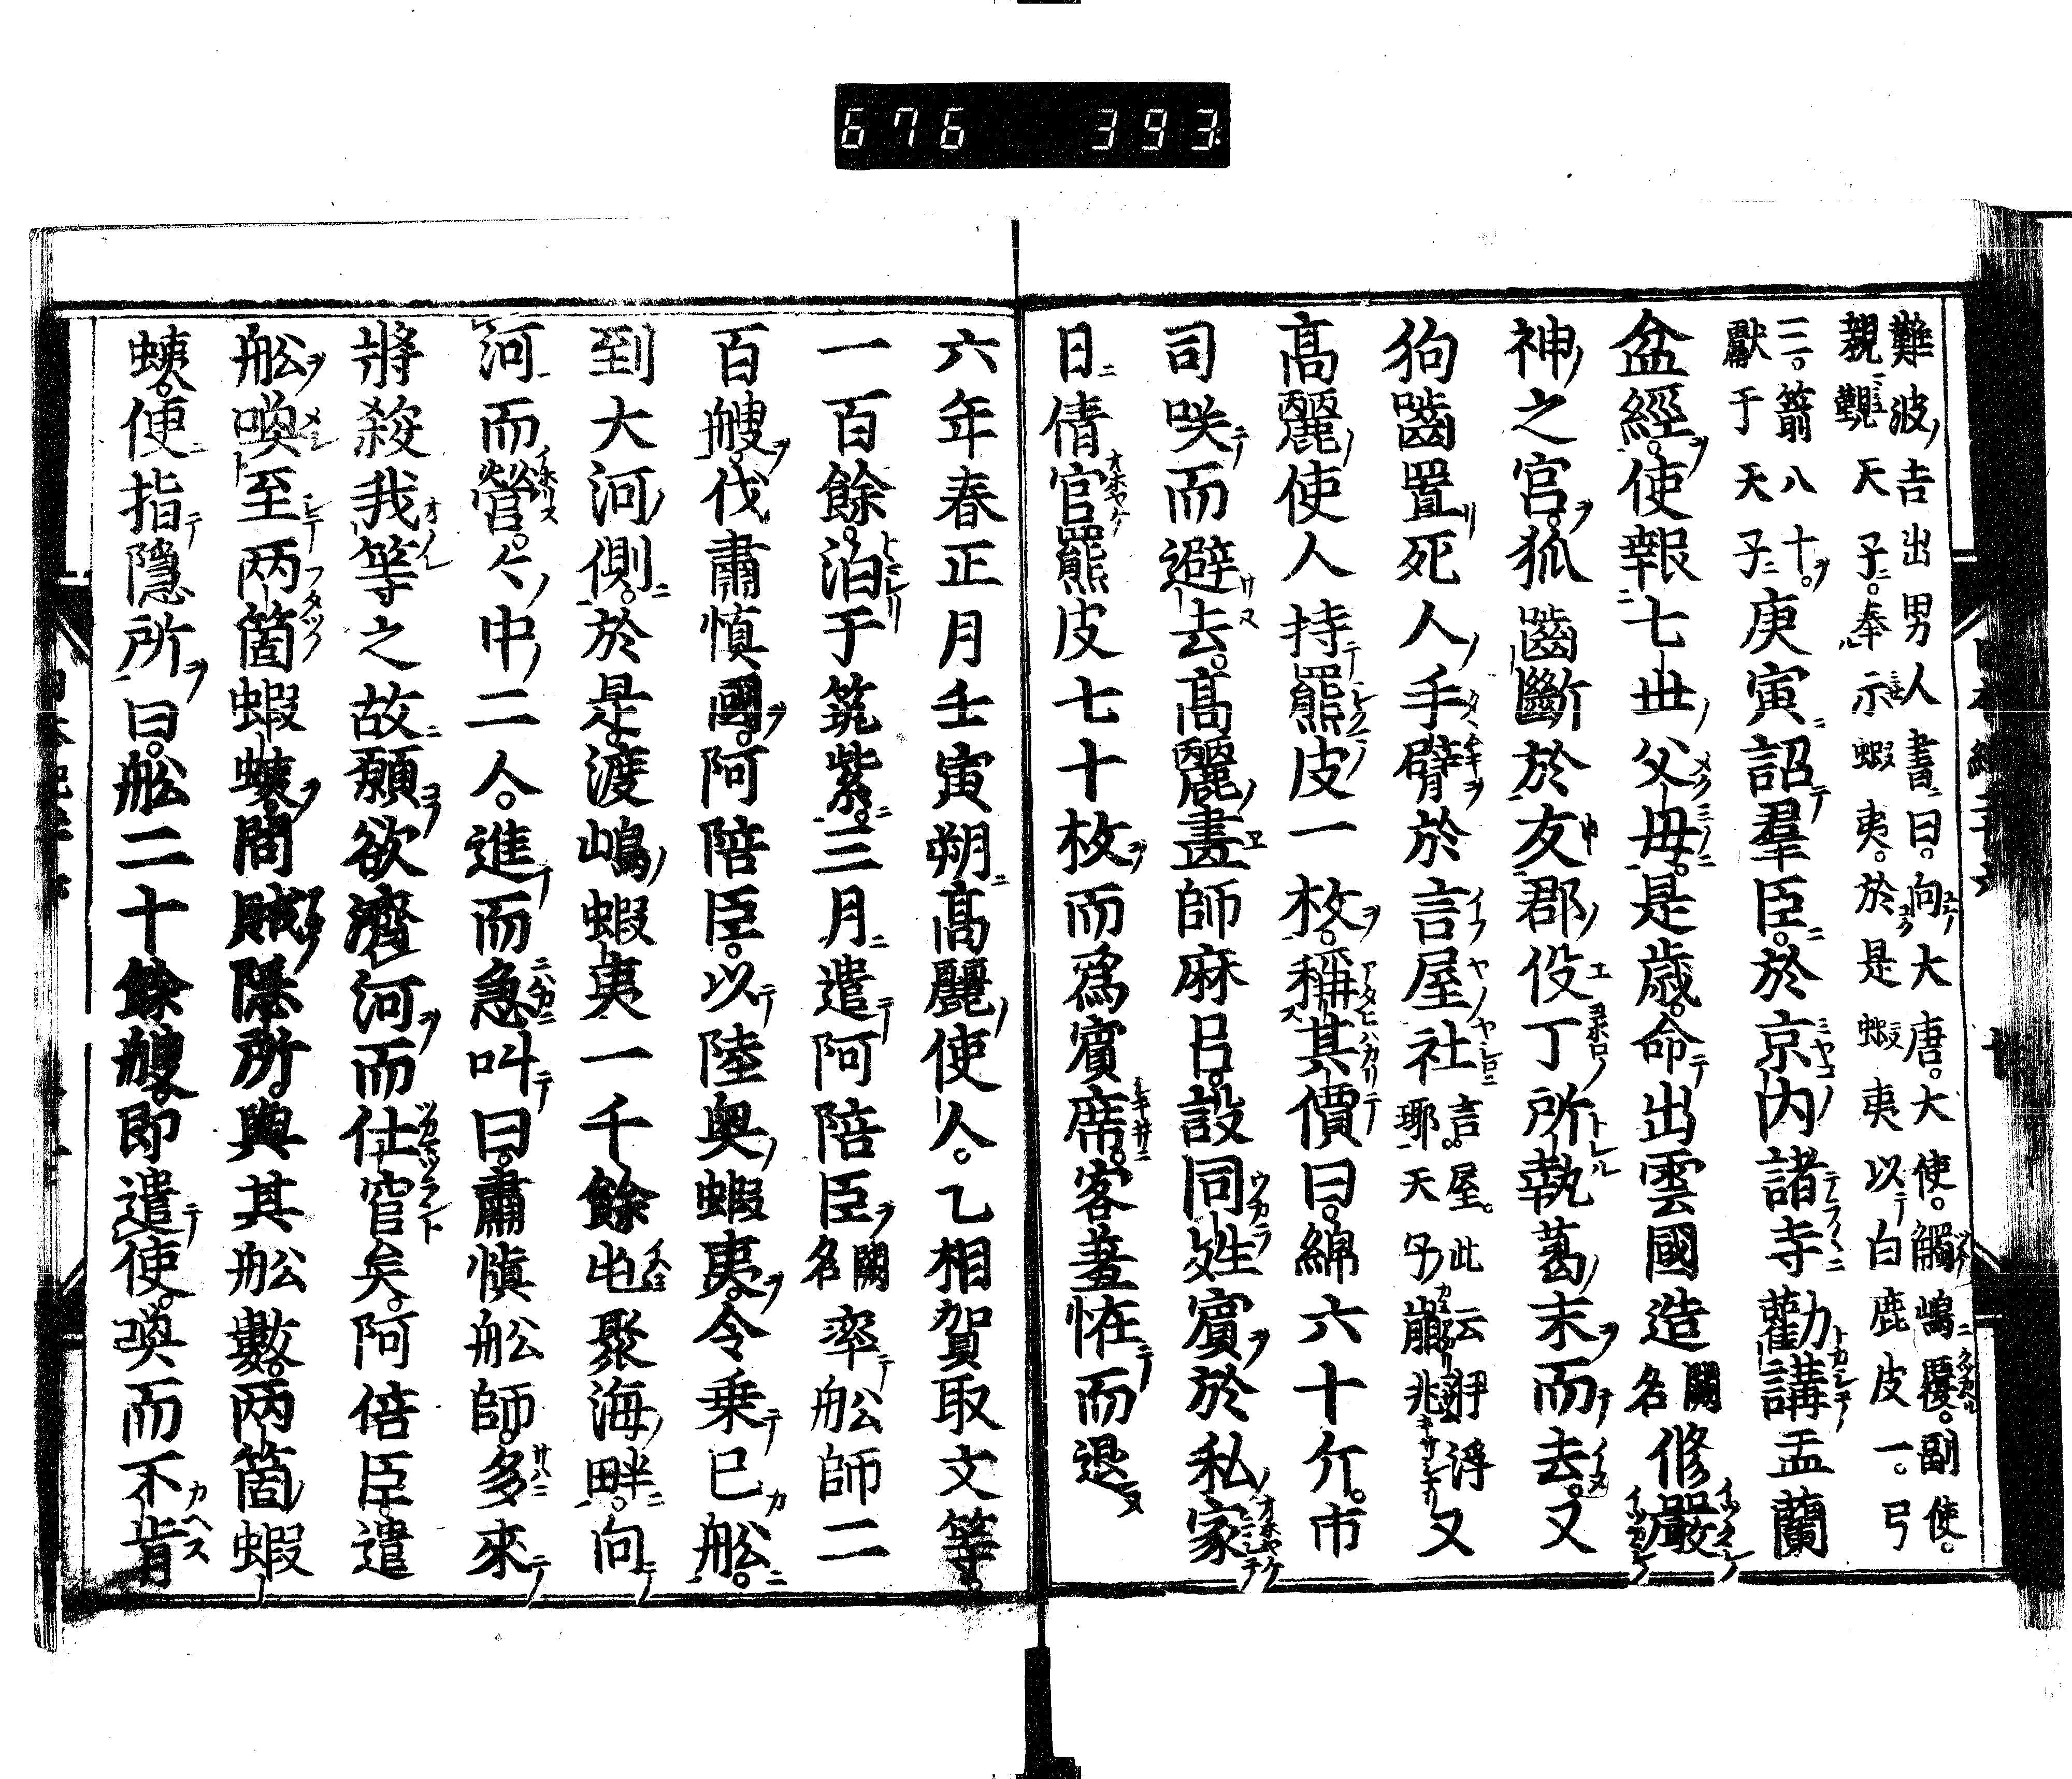 676 393
難波吉出男人書曰。向大唐。大使。觸嶋覆。副使。
親覲天子。奉示蝦夷。於是蝦夷以白鹿皮一。弓
三。箭八十。
獻于天子。庚寅詔羣臣。於京内諸寺勸講盂蘭
盆經。使報七世父母。是歲。命出雲國造闕名修嚴
神之宮。狐嚙斷於友郡役丁所執葛末而去。又
狗嚙置死人手臂於言屋社言。屋。此云伊浮瑘天子崩兆又
高麗使人持羆皮一枚。稱其價曰。綿六十斤。市
司咲而避去。高麗畫師麻呂。設同姓賓於私家
日借官羆皮七十枚而爲賓席。客羞恠而退
六年春正月壬寅朔高麗使人。乙相賀取文等。
一百餘。泊于筑紫。三月遣阿陪臣闕名率舩師二
百艘。伐肅愼國。阿陪臣。以陸奥蝦夷。令乗已舩。
到大河側。於是。渡嶋蝦夷一千餘屯聚海畔。向
河而營。々中二人。進而急叫曰。肅愼舩師。多來
將殺我等之故願欲濟河而仕官矣。阿倍臣。遣
舩喚至两箇蝦蛦問賊隱所。與其舩數。两箇蝦
蛦。便指隱所曰。舩二十餘艘。即遣使。喚而不肯